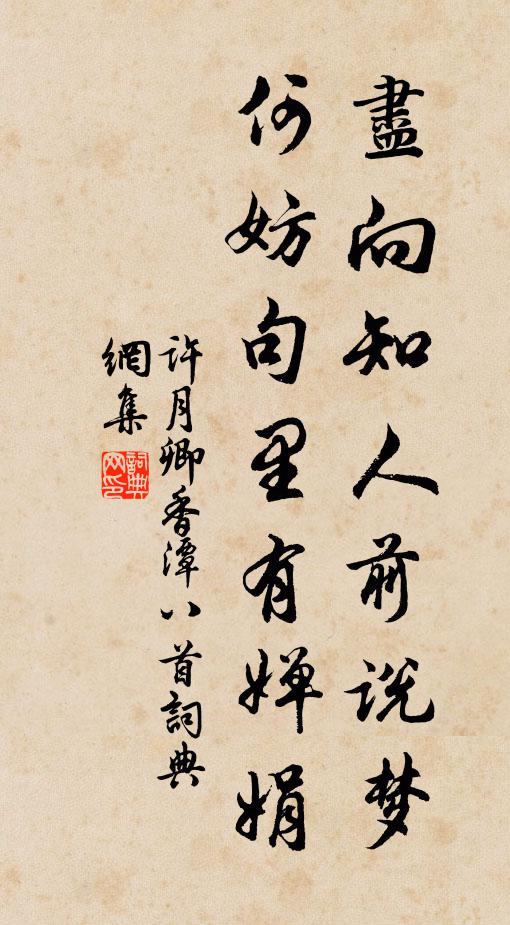 盡向知人前説梦
何妨句里有嬋娟
許月卿香潭八首詞典
網集
詞典網印